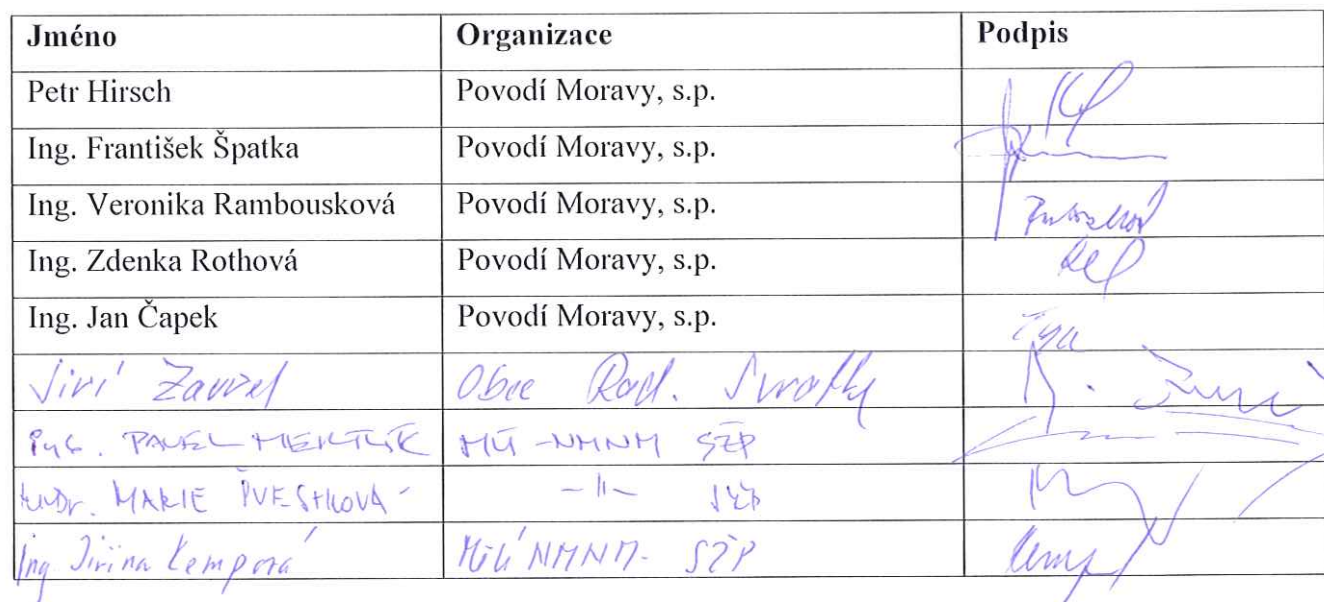 Jméno Organizace Podpis
Petr Hirsch Povodí Moravy, s.p.
Ing. František Špatka Povodí Moravy, s.p.
Ing. Veronika Rambousková Povodí Moravy, s.p.
Ing. Zdenka Rothová Povodí Moravy, s.p.
Ing. Jan Čapek Povodí Moravy, s.p.
Jiří Obec Rad. Svratka
Ing. PAVEL MěÚ -NMNM SŽP
MARIE ŠVESTKOVÁ -II-
Ing Jiřina Kemprová MěÚ NMNM- SŽP